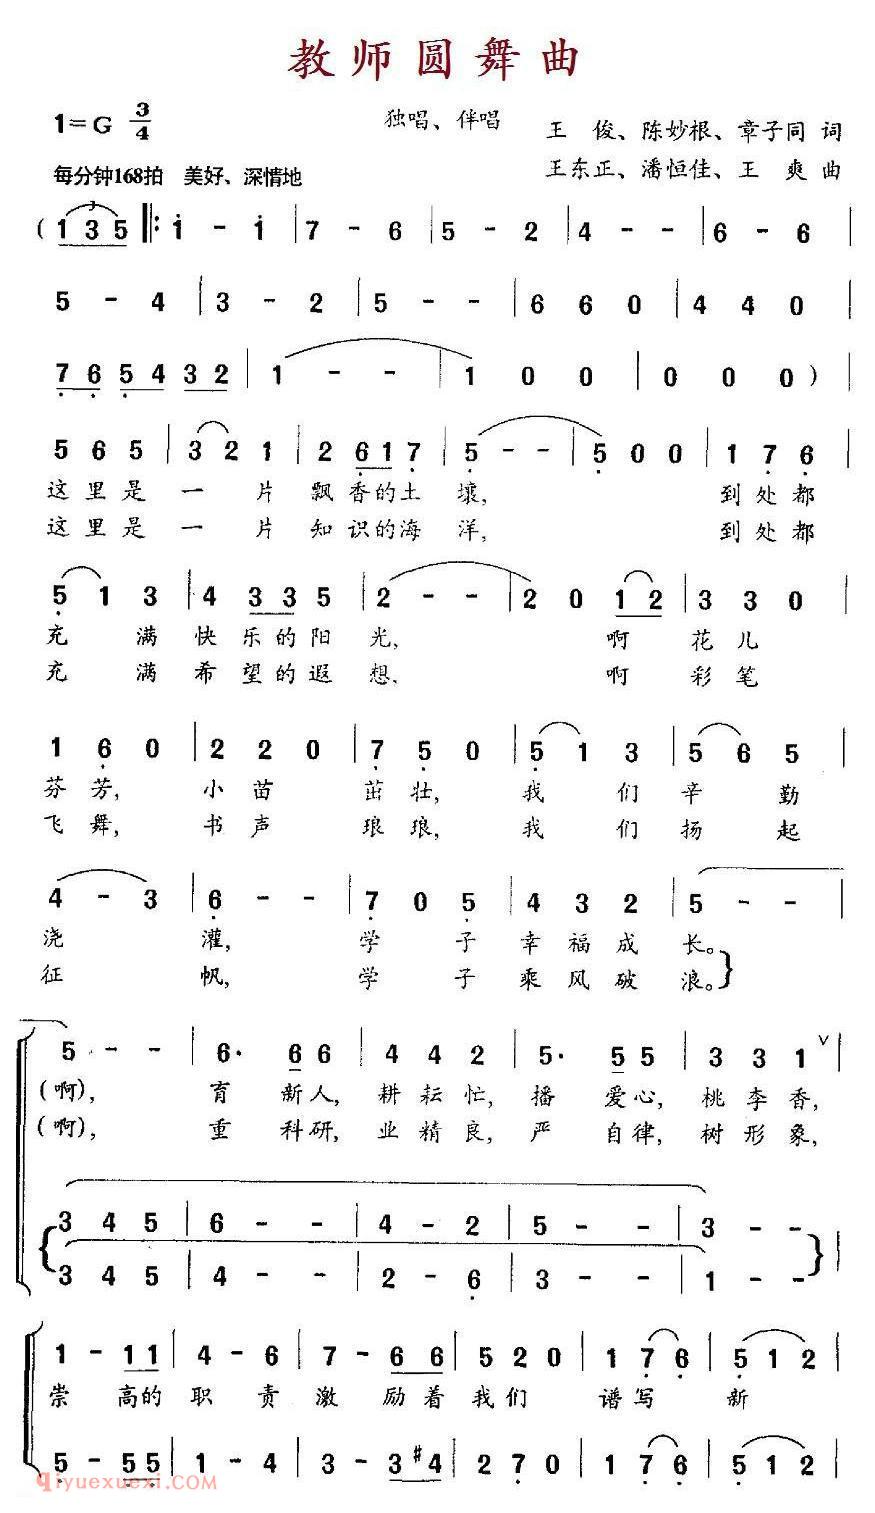 教师圆舞曲
1=G 3/4
独唱、伴唱
王 俊、陈妙根、章子同 词
每分钟168拍 美好、深情地
王东正、潘恒佳、王 爽 曲
( 1 3 5 ‖: 1 - 1 | 7 - 6 | 5 - 2 | 4 - - | 6 - 6 |
5 - 4 | 3 - 2 | 5 - - | 6 6 0 | 4 4 0 |
7 6 5 4 3 2 | 1 - - | 1 0 0 | 0 0 0 ) |
5 6 5 | 3 2 1 | 2 6 1 7 | 5 - - | 5 0 0 | 1 7 6 |
这里是 一 片 飘 香的土 壤, 到处都
这里是 一 片 知 识的海 洋, 到处都
5 1 3 | 4 3 3 5 | 2 - - | 2 0 1 2 | 3 3 0 |
充 满 快 乐的阳 光, 啊 花儿
充 满 希 望的遐 想, 啊 彩笔
1 6 0 | 2 2 0 | 7 5 0 | 5 1 3 | 5 6 5 |
芬芳, 小苗 茁壮, 我 们 辛 勤
飞舞, 书声 琅琅, 我 们 扬 起
4 - 3 | 6 - - | 7 0 5 | 4 3 2 | 5 - -
浇 灌, 学 子 幸福成 长。
征 帆, 学 子 乘风破 浪。
5 - - | 6· 6 6 | 4 4 2 | 5· 5 5 | 3 3 1 ∨ |
(啊), 育 新人, 耕耘忙, 播 爱心, 桃李香,
(啊), 重 科研, 业精良, 严 自律, 树形象,
3 4 5 | 6 - - | 4 - 2 | 5 - - | 3 - - |
3 4 5 | 4 - - | 2 - 6 | 3 - - | 1 - - |
1 - 1 1 | 4 - 6 | 7 - 6 6 | 5 2 0 | 1 7 6 | 5 1 2 |
崇 高的 职 责 激 励着 我们 谱写 新
5 - 5 5 | 1 - 4 | 3 - 3 #4 | 2 7 0 | 1 7 6 | 5 1 2 |
qiyuexuexi.com